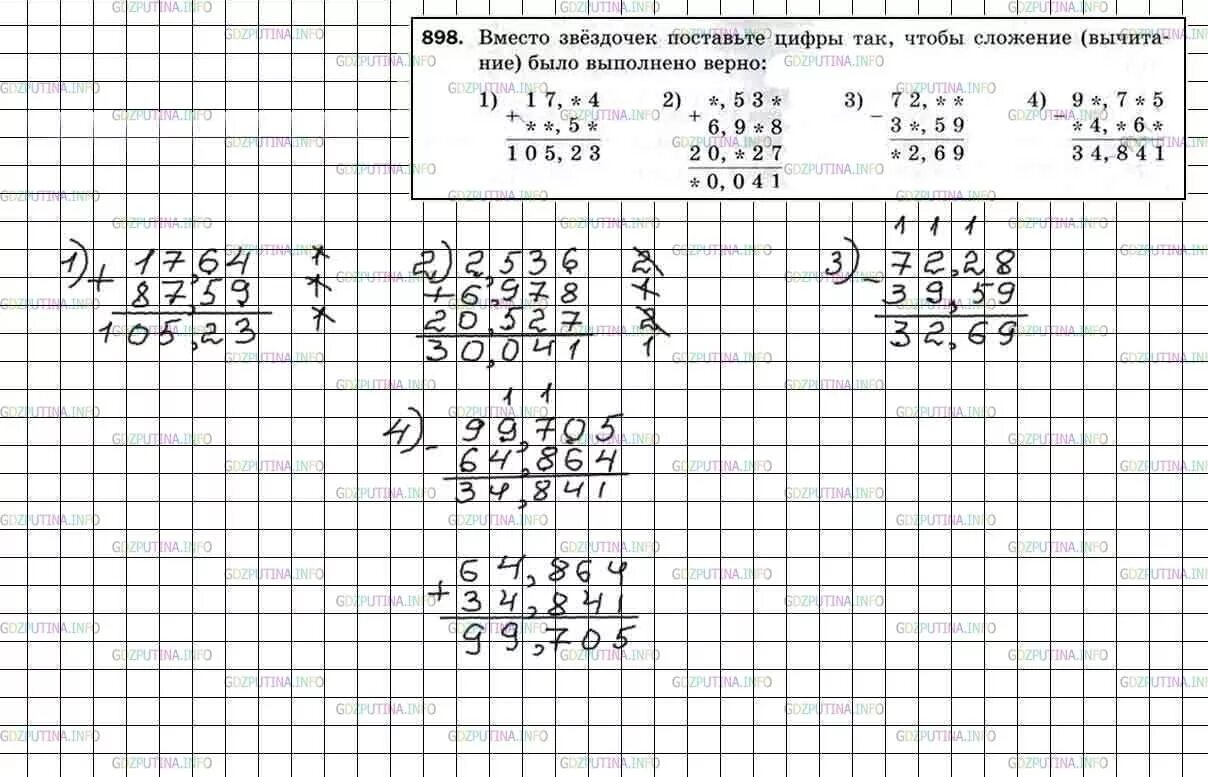 898. Вместо звёздочек поставьте цифры так, чтобы сложение (вычита-
ние) было выполнено верно:
1) 17,*4
+
**,5*
105,23
2) *,53*
+
6,9*8
20,*27
*0,041
3) 72,**
−
3*,59
*2,69
4) 9*,7*5
−
*4,*6*
34,841
1) 17,64
+
87,59
105,23
2) 2,536
+6,978
20,527
30,041
2
1
2
1
1 1 1
3) 72,28
−
39,59
32,69
1 1
4) 99,705
−
64,864
34,841
64,864
+
34,841
99,705
GDZPUTINA.INFO